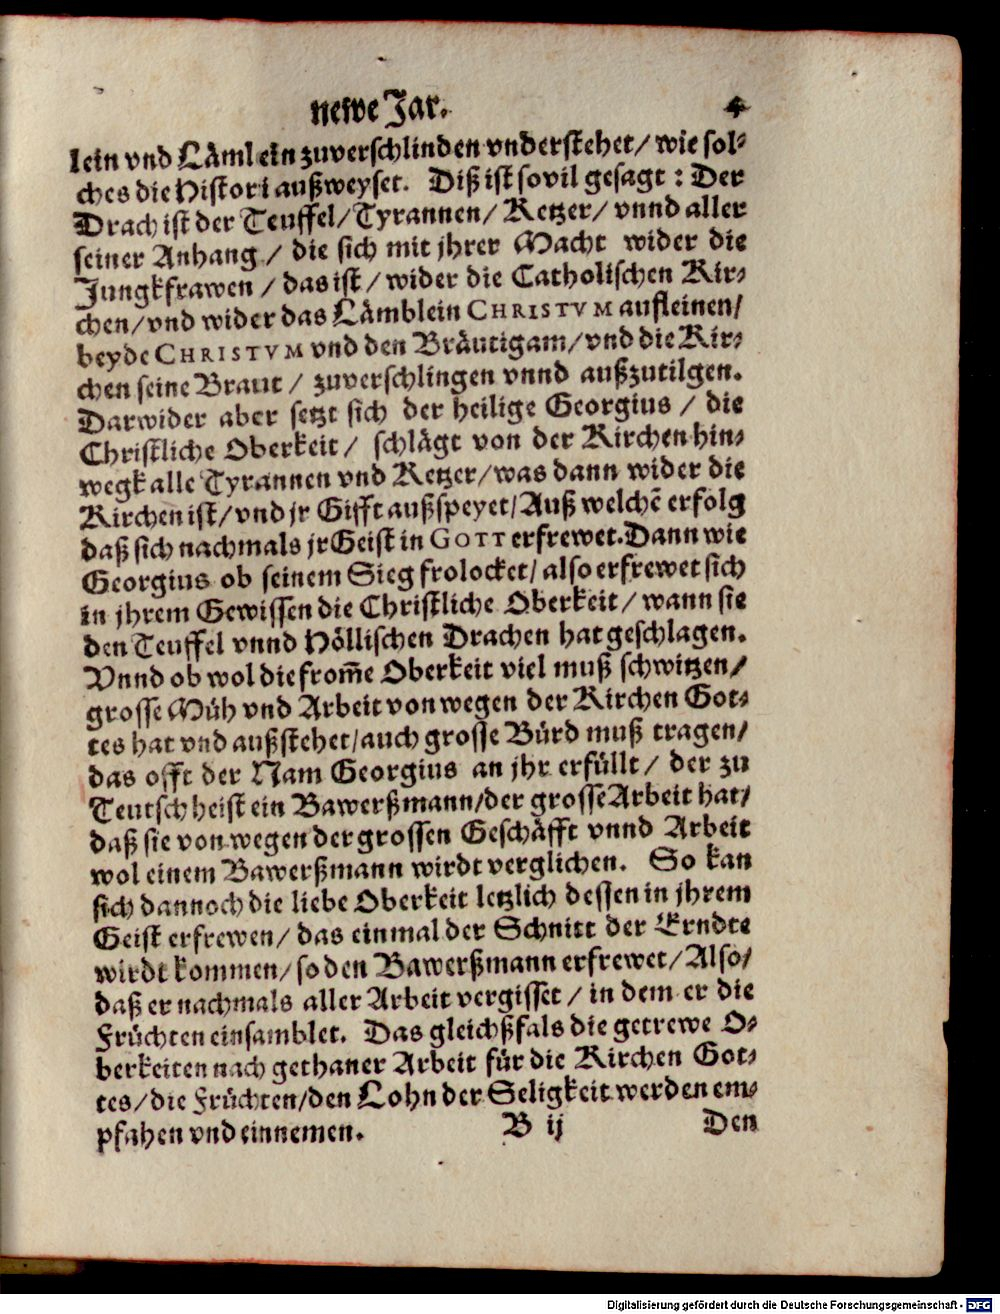 newe Jar. 4
lein vnd Lämlein zuverschlinden vnderstehet/ wie sol-
ches die Histori außweyset. Diß ist sovil gesagt: Der
Drach ist der Teuffel/ Tyrannen/ Ketzer/ vnnd aller
seiner Anhang/ die sich mit jhrer Macht wider die
Jungkfrawen/ das ist/ wider die Catholischen Kir-
chen/ vnd wider das Lämblein CHRISTVM aufleinen/
beyde CHRISTVM vnd den Bräutigam/ vnd die Kir-
chen seine Braut/ zuverschlingen vnnd außzutilgen.
Darwider aber setzt sich der heilige Georgius/ die
Christliche Oberkeit/ schlägt von der Kirchen hin-
wegk alle Tyrannen vnd Ketzer/ was dann wider die
Kirchen ist/ vnd jr Gifft außspeyet/ Auß welchē erfolg
daß sich nachmals jr Geist in GOTT erfrewet. Dann wie
Georgius ob seinem Sieg frolocket/ also erfrewet sich
in jhrem Gewissen die Christliche Oberkeit/ wann sie
den Teuffel vnnd Höllischen Drachen hat geschlagen.
Vnnd ob wol die from̃e Oberkeit viel muß schwitzen/
grosse Müh vnd Arbeit von wegen der Kirchen Got-
tes hat vnd außstehet/ auch grosse Bürd muß tragen/
das offt der Nam Georgius an jhr erfüllt/ der zu
Teutsch heist ein Bawerßmann/ der grosse Arbeit hat/
daß sie von wegen der grossen Geschäfft vnnd Arbeit
wol einem Bawerßmann wirdt verglichen. So kan
sich dannoch die liebe Oberkeit letzlich dessen in jhrem
Geist erfrewen/ das einmal der Schnitt der Erndte
wirdt kommen/ so den Bawerßmann erfrewet/ Also/
daß er nachmals aller Arbeit vergisset/ in dem er die
Früchten einsamblet. Das gleichßfals die getrewe O-
berkeiten nach gethaner Arbeit für die Kirchen Got-
tes/ die Früchten/ den Lohn der Seligkeit werden em-
pfahen vnd einnemen. B ij Den
Digitalisierung gefördert durch die Deutsche Forschungsgemeinschaft - DFG